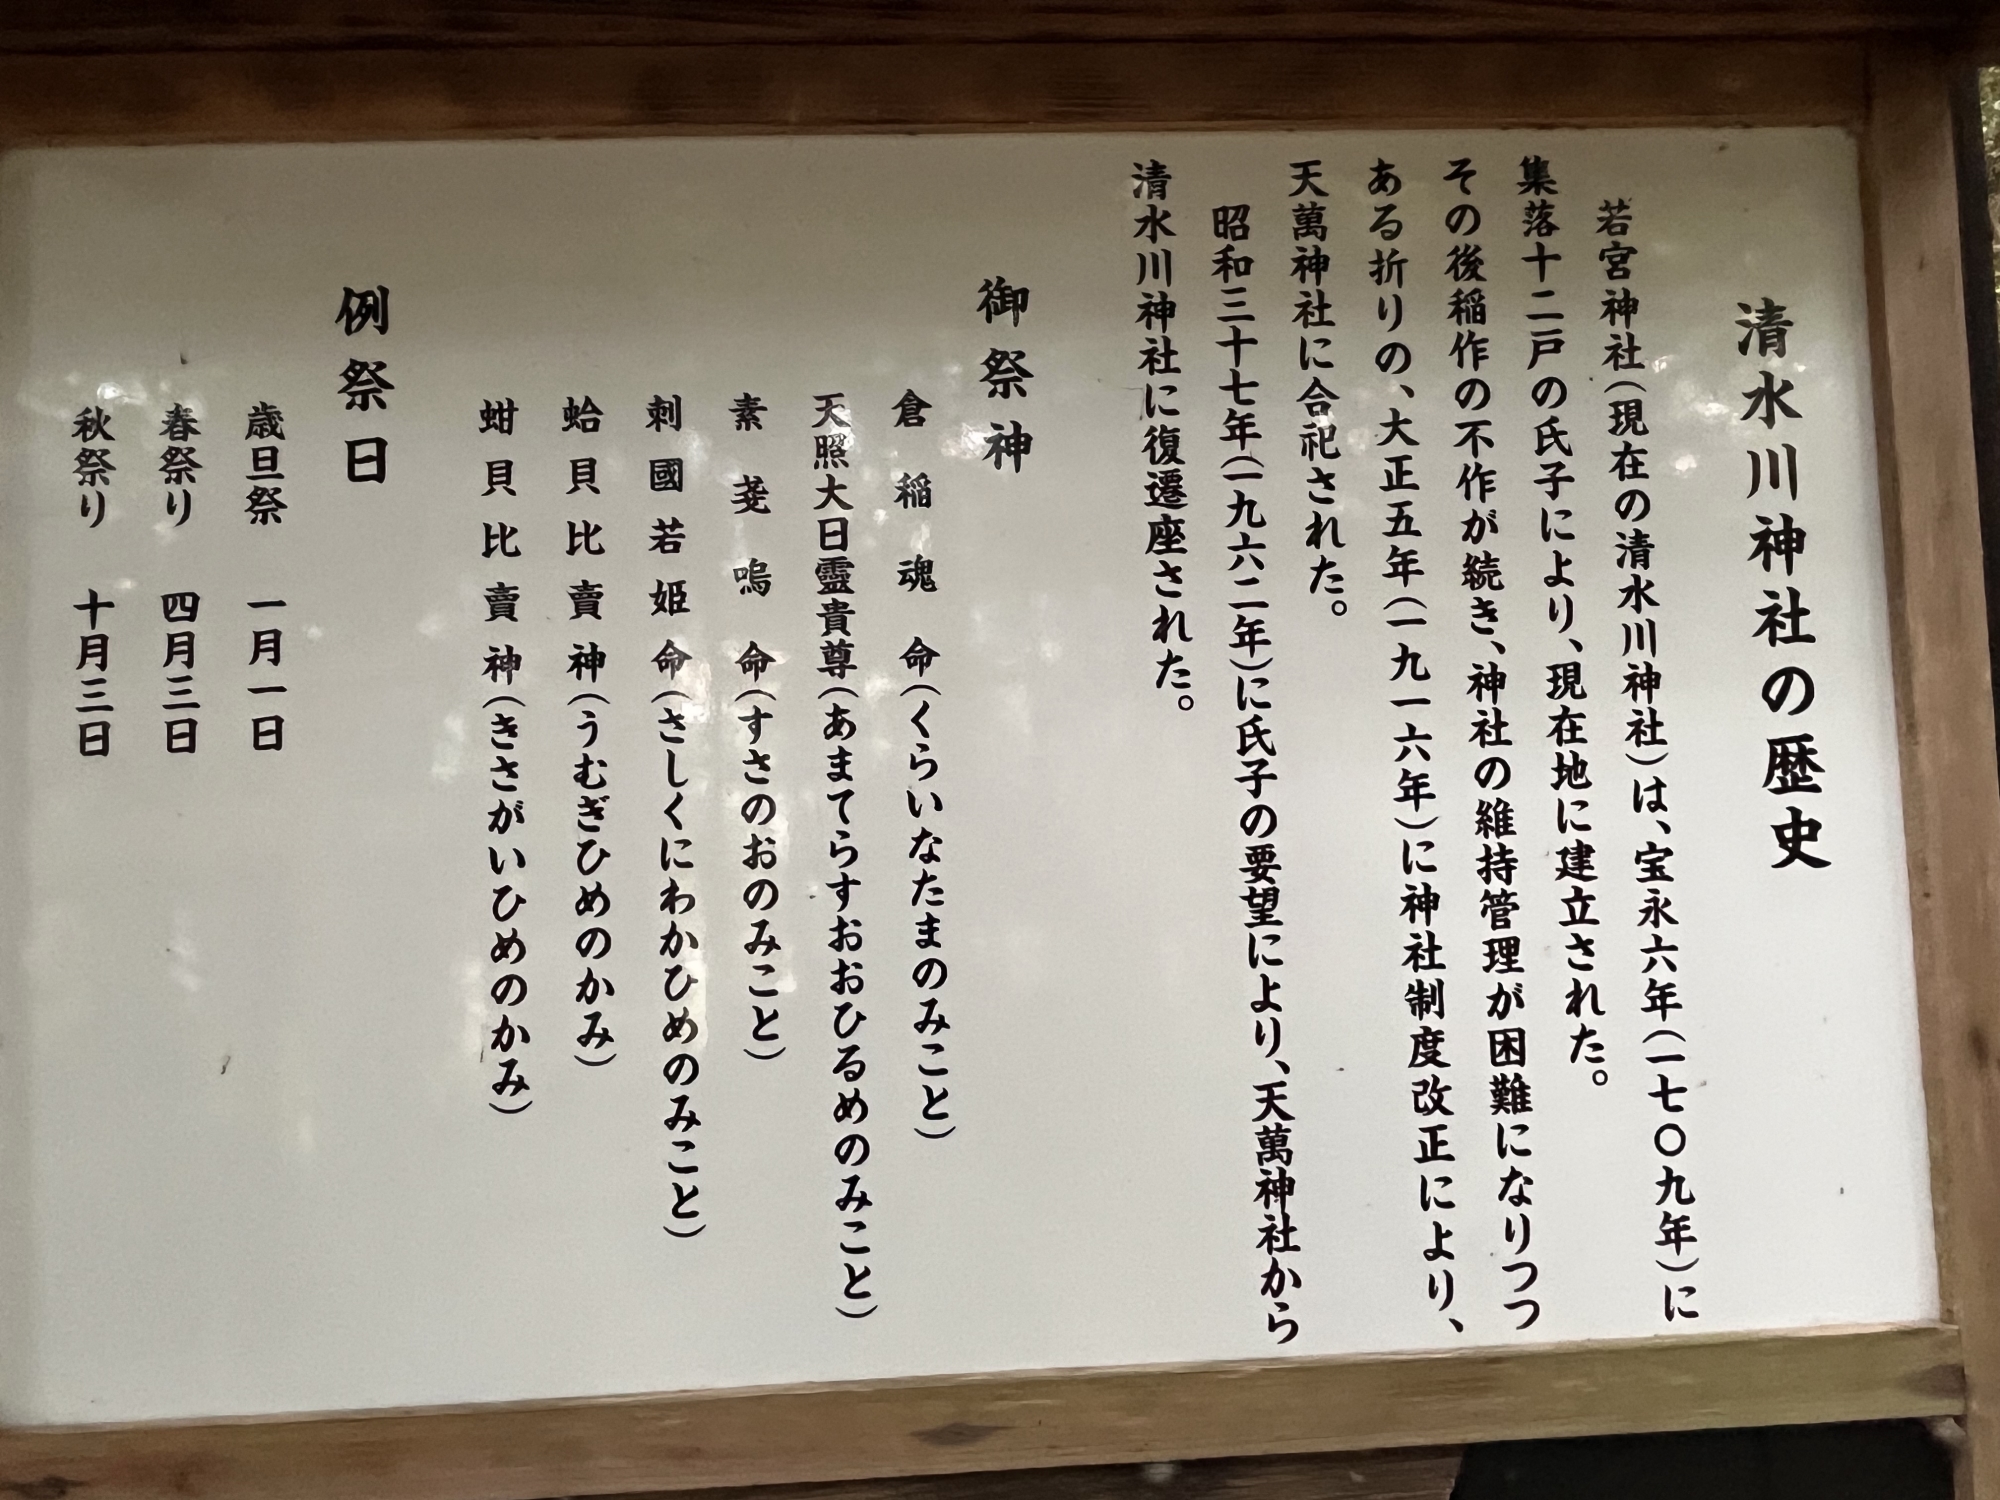 清水川神社の歴史
若宮神社(現在の清水川神社)は、宝永六年(一七〇九年)に
集落十二戸の氏子により、現在地に建立された。
その後稲作の不作が続き、神社の維持管理が困難になりつつ
ある折りの、大正五年(一九一六年)に神社制度改正により、
天萬神社に合祀された。
昭和三十七年(一九六二年)に氏子の要望により、天萬神社から
清水川神社に復遷座された。
御祭神
倉稲魂命(くらいなたまのみこと)
天照大日霊貴尊(あまてらすおおひるめのみこと)
素戔嗚命(すさのおのみこと)
刺國若姫命(さしくにわかひめのみこと)
蛤貝比賣神(うむぎひめのかみ)
蚶貝比賣神(きさがいひめのかみ)
例祭日
歳旦祭 一月一日
春祭り 四月三日
秋祭り 十月三日